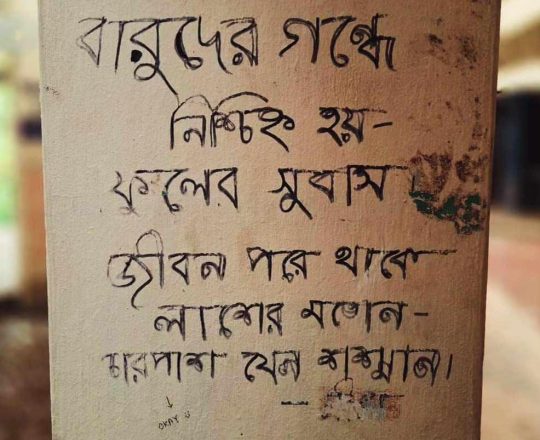 বারুদের গন্ধে
নিশ্চিহ্ন হয়-
ফুলের সুবাস।
জীবন পরে থাকে
লাশের মতোন-
চারপাশ যেন শশ্মান।
OKAY